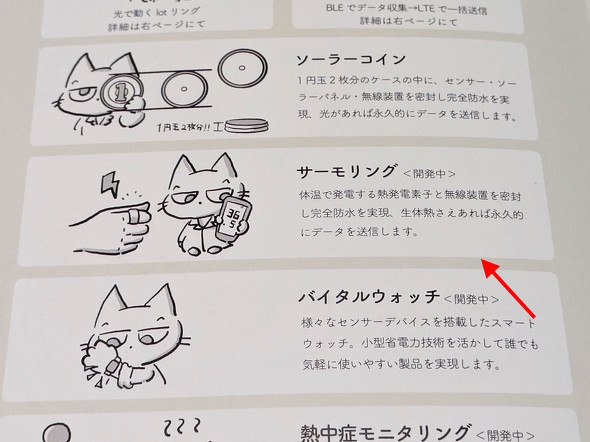 光で動くIotリング
詳細は右ページにて
BLEでデータ収集→LTEで一括送信
詳細は右ページにて
ソーラーコイン
1円玉2枚分のケースの中に、センサー・ソー
ラーパネル・無線装置を密封し完全防水を実
現、光があれば永久的にデータを送信します。
1
1円玉2枚分!!
サーモリング <開発中>
体温で発電する熱発電素子と無線装置を密封
し完全防水を実現、生体熱さえあれば永久的
にデータを送信します。
36.
5
バイタルウォッチ <開発中>
様々なセンサーデバイスを搭載したスマート
ウォッチ。小型省電力技術を活かして誰でも
気軽に使いやすい製品を実現します。
熱中症モニタリング <開発中>